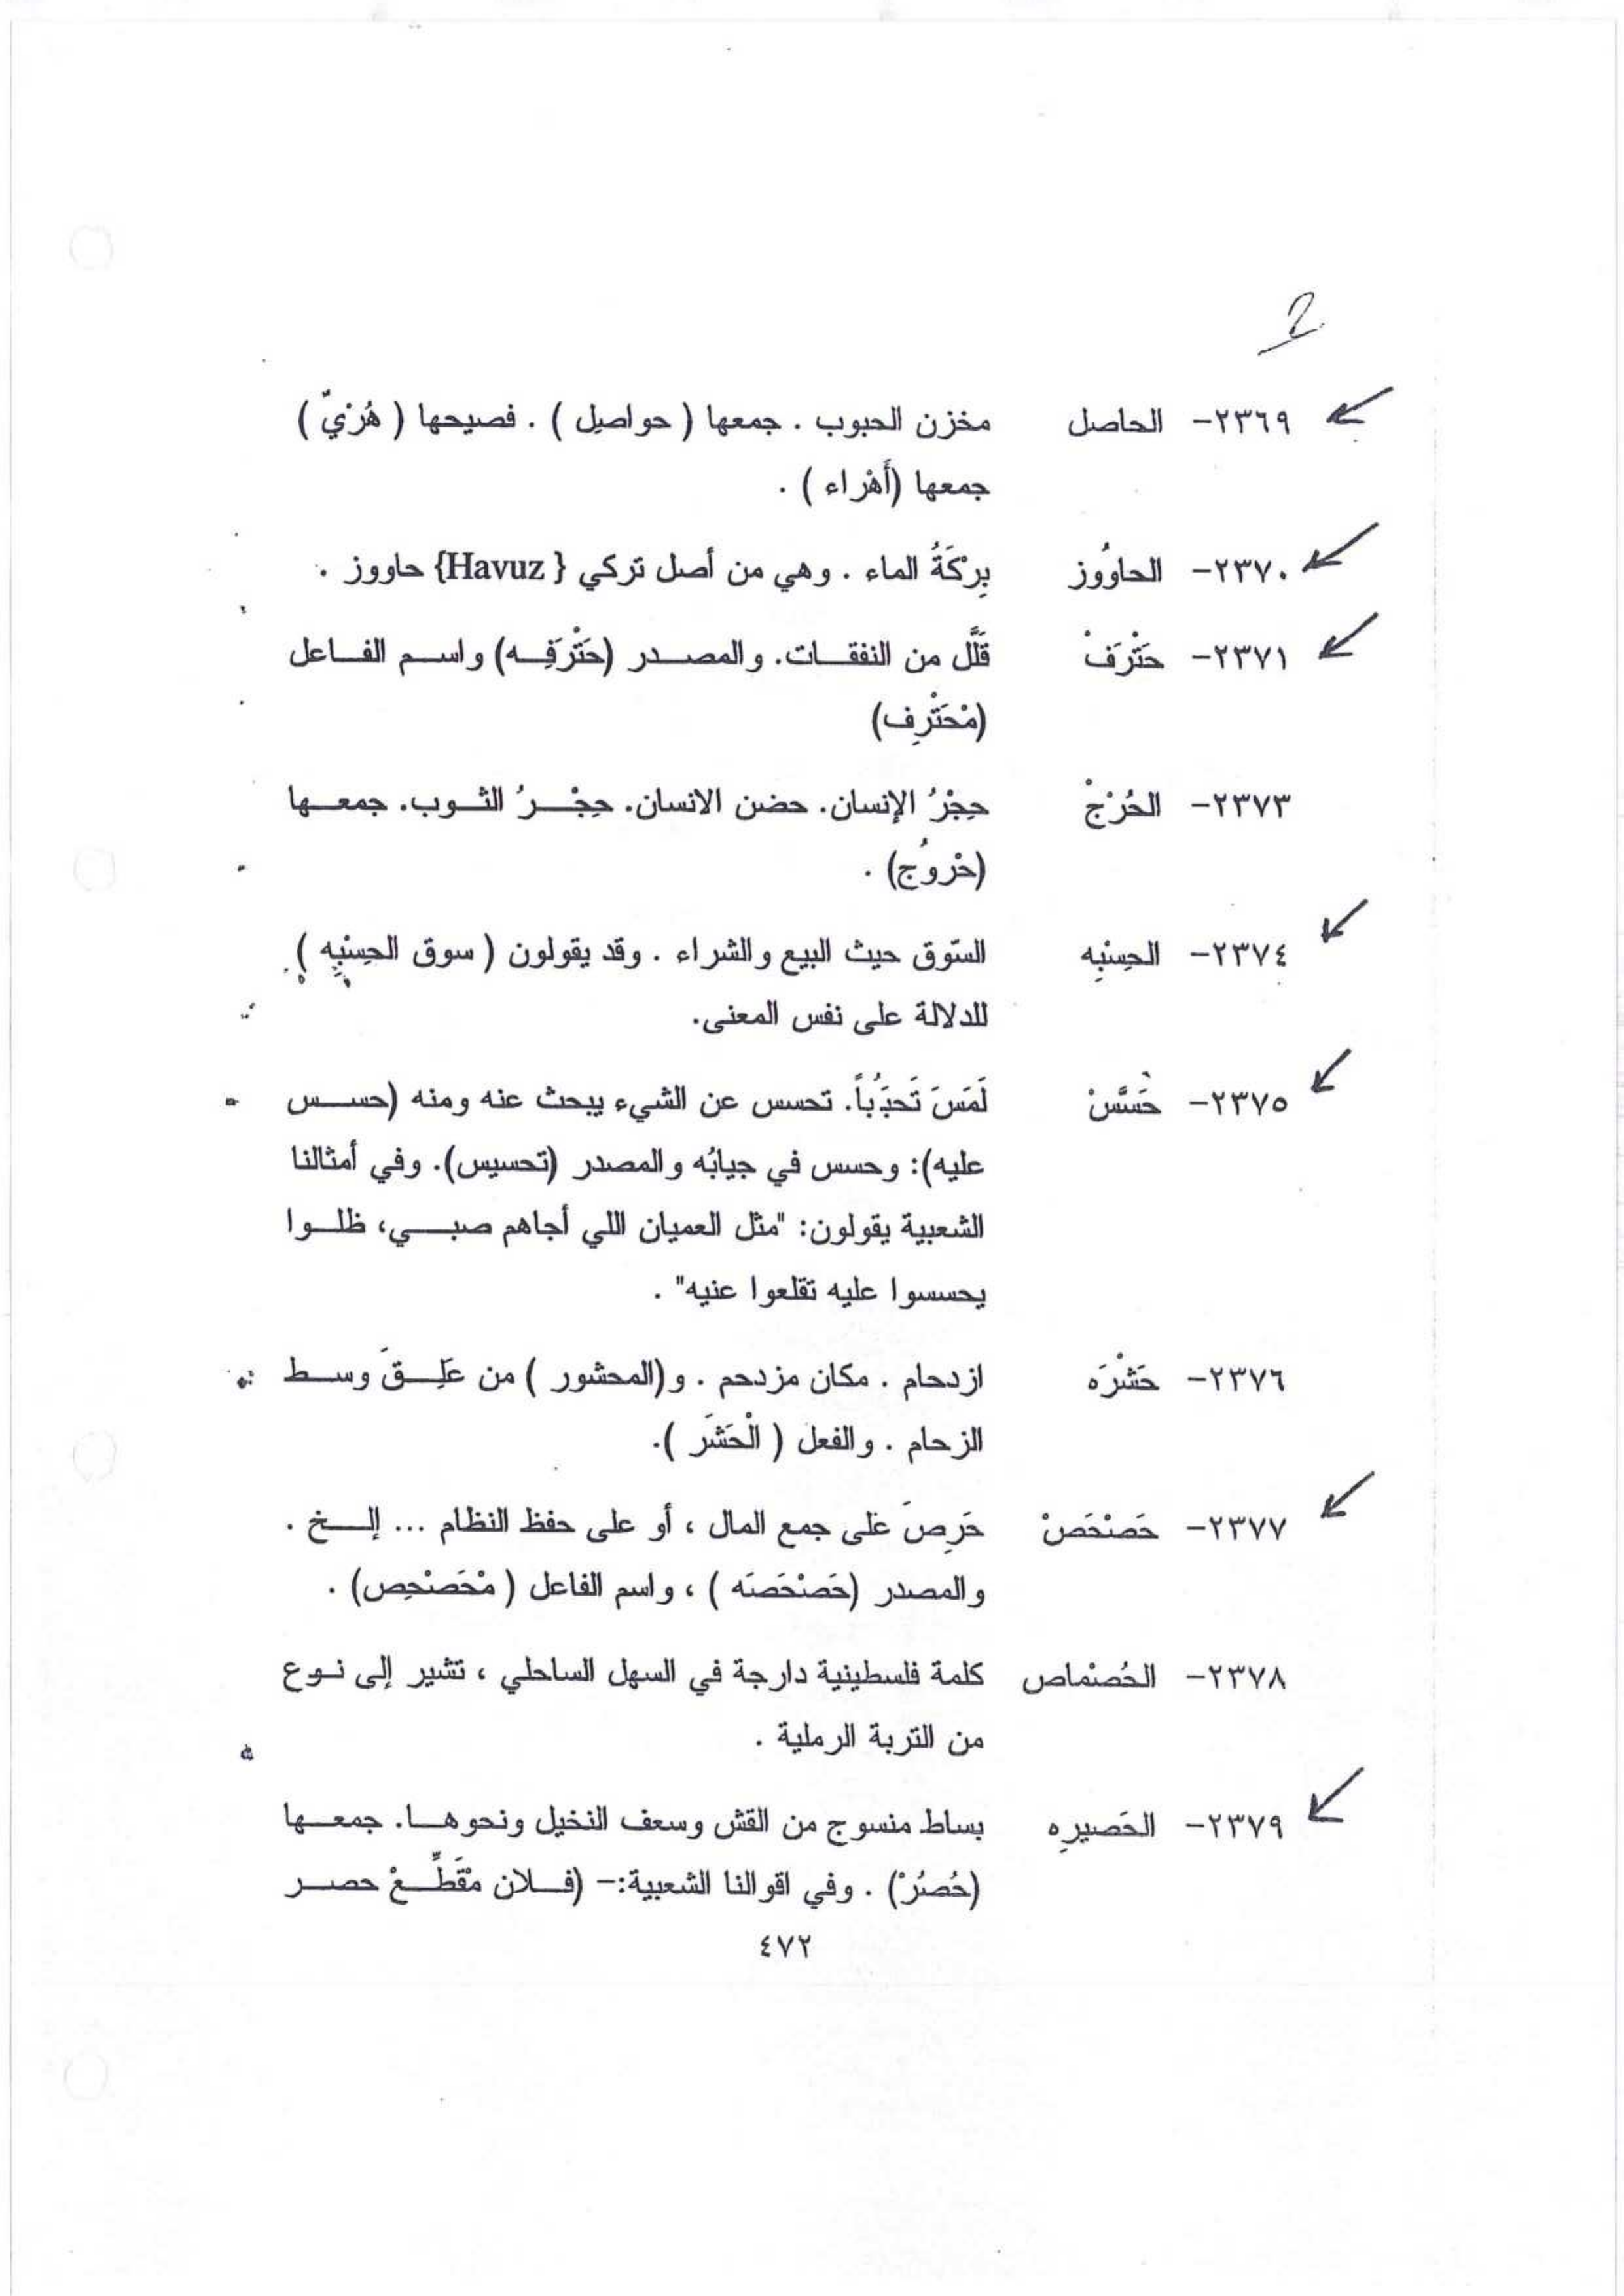 2
٢٣٦٩- الحاصل مخزن الحبوب . جمعها ( حواصيل ) . فصيحها ( هُرْيٌّ )
جمعها (أَهْراء ) .
٢٣٧٠- الحاوُوز بِرْكَةُ الماء . وهي من أصل تركي { Havuz} حاووز .
٢٣٧١- حَتْرَفْ قَلَّل من النفقـات. والمصـدر (حَتْرَفِـه) واسـم الفـاعل
(مْحَتْرِف)
٢٣٧٣- الحُرْجْ حِجْرُ الإنسان. حضن الانسان. حِجْـرُ الثـوب. جمعـها
(حْروُج) .
٢٣٧٤- الحِسْبِه السّوق حيث البيع والشراء . وقد يقولون ( سوق الحِسْبِه ).
للدلالة على نفس المعنى.
٢٣٧٥- حَسَّسْ لَمَسَ تَحبُّباً. تحسس عن الشيء يبحث عنه ومنه (حسـس
عليه): وحسس في جيابُه والمصدر (تحسيس). وفي أمثالنا
الشعبية يقولون: "مثل العميان اللي أجاهم صبـي، ظلـوا
يحسسوا عليه تقلعوا عنيه" .
٢٣٧٦- حَشْرَه ازدحام . مكان مزدحم . و(المحشور ) من عَلِـقَ وسـط
الزحام . والفعل ( الْحَشَر ).
٢٣٧٧- حَصْحَصْ حَرِصَ عَلى جمع المال ، أو على حفظ النظام ... إلـخ .
والمصدر (حَصْحَصَه ) ، واسم الفاعل ( مْحَصْحِص) .
٢٣٧٨- الحُصْماص كلمة فلسطينية دارجة في السهل الساحلي ، تشير إلى نـوع
من التربة الرملية .
٢٣٧٩- الحَصيرِه بساط منسوج من القش وسعف النخيل ونحوهـا. جمعـها
(حُصُرْ) . وفي اقوالنا الشعبية:- (فـلان مْقَطِّـعْ حصـر
٤٧٢